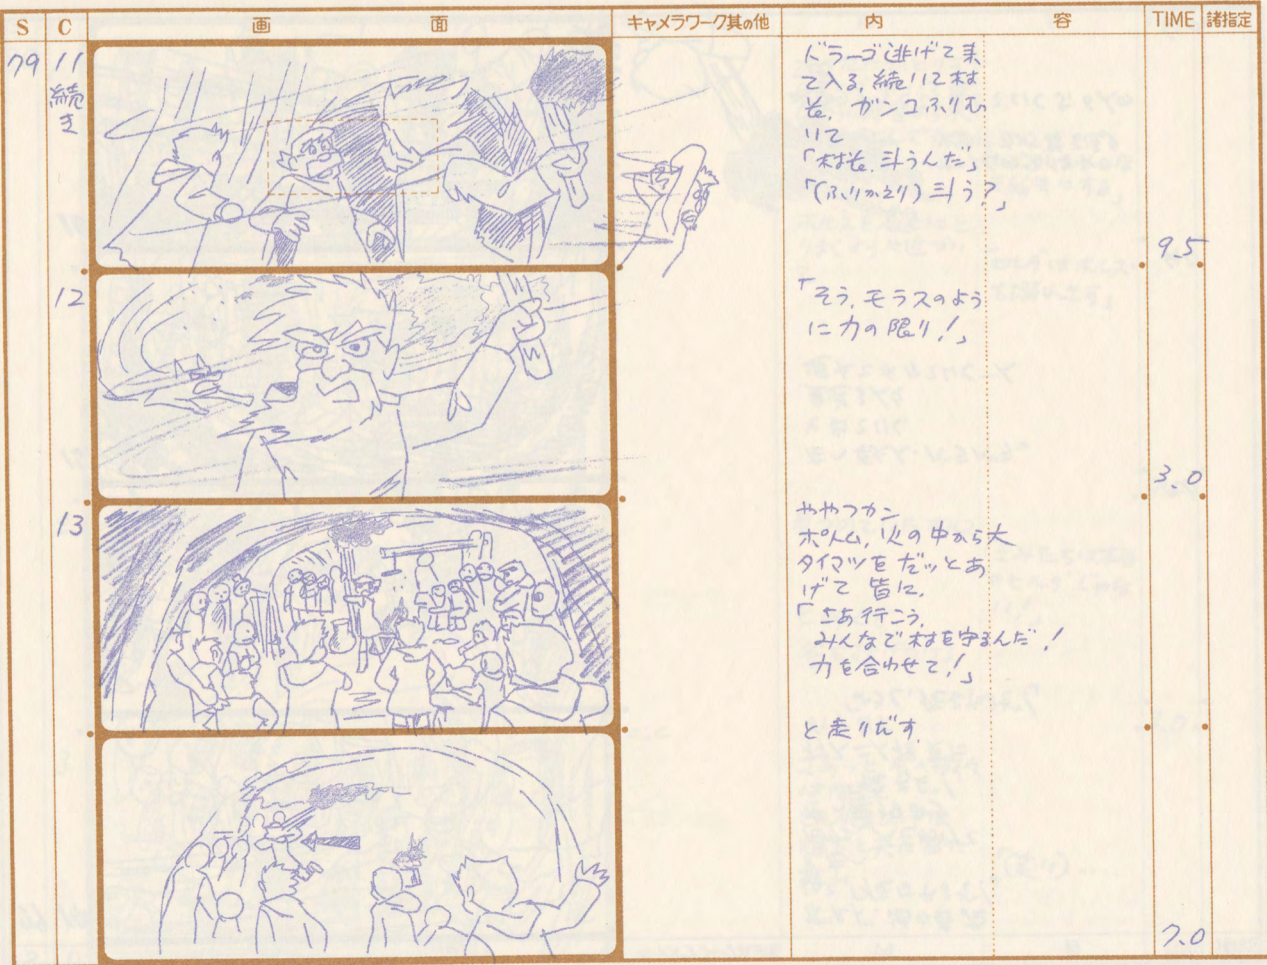 S C 画 面 キャメラワーク其の他 内 容 TIME 諸指定
79 11
続き
ドラーゴ逃げて来
て入る,続いて村
長,ガンコふりむ
いて
「村長,斗うんだ」
「(ふりかえり)斗う?」
9.5
12
「そう,モラスのよう
に力の限り!」
3.0
13
ややフカン
ポトム,火の中から大
タイマツをだッとあ
げて皆に,
「さあ行こう,
みんなで村を守るんだ!
力を合わせて!」
と走りだす
7.0